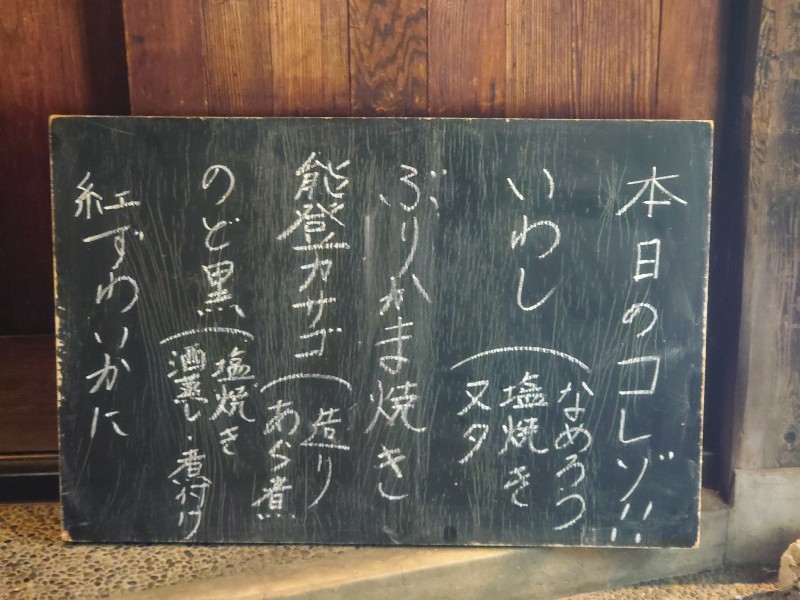 本日のコレゾ!!
いわし
なめろう
塩焼き
ヌタ
ぶりかま焼き
能登カサゴ
造り
あら煮
のど黒
塩焼き
酒蒸し・煮付け
紅ずわいかに